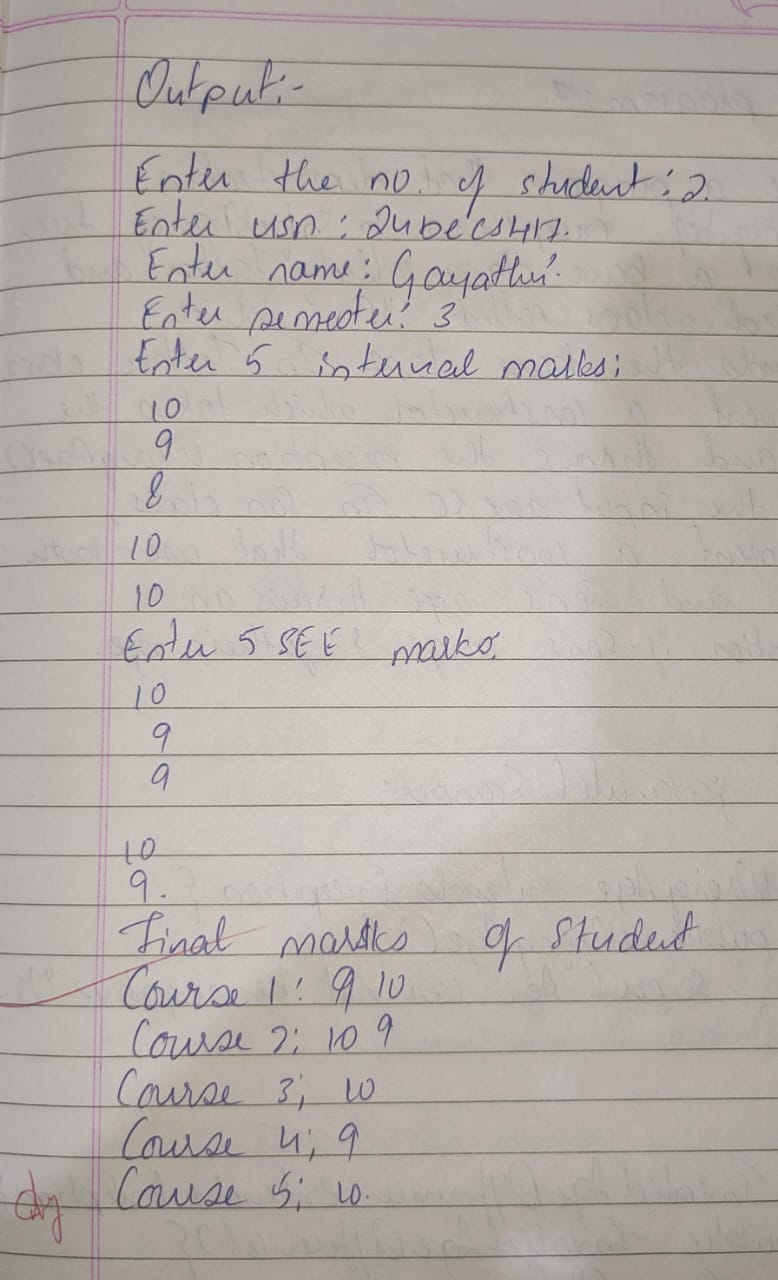 Output:-
Enter the no. of student: 2.
Enter usn: 24becs417.
Enter name: Gayathri.
Enter semester: 3
Enter 5 internal marks:
10
9
8
10
10
Enter 5 SEE marks.
10
9
9
10
9.
Final marks of Student
Course 1: 9 10
Course 2: 10 9
Course 3; 10
Course 4; 9
Course 5; 10.